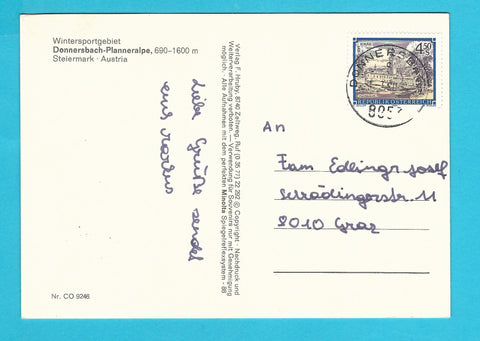 Wintersportgebiet
Donnersbach-Planneralpe, 690–1600 m
Steiermark · Austria
Liebe Grüße sendet
eins Markus
Nr. CO 9246
Verlag F. Hruby, 8740 Zeltweg, Ruf (0 35 77) 22 392 © Copyright · Nachdruck und
Weiterverarbeitung verboten. — Verwendung für Souvenirs nur mit Genehmigung
möglich. Alle Aufnahmen mit dem perfekten Minolta Spiegelreflexsystem - 88
4.50
REPUBLIK ÖSTERREICH
DONNERSB
An
Fam Edlingr Josef
Schrödingerstr. 11
8010 Graz